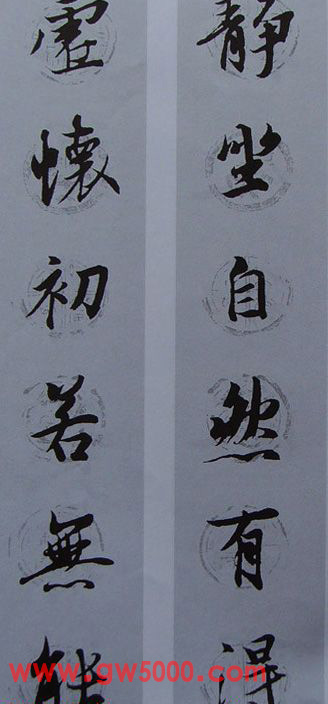 靜坐自然有得
虛懷初若無能
www.gw5000.com